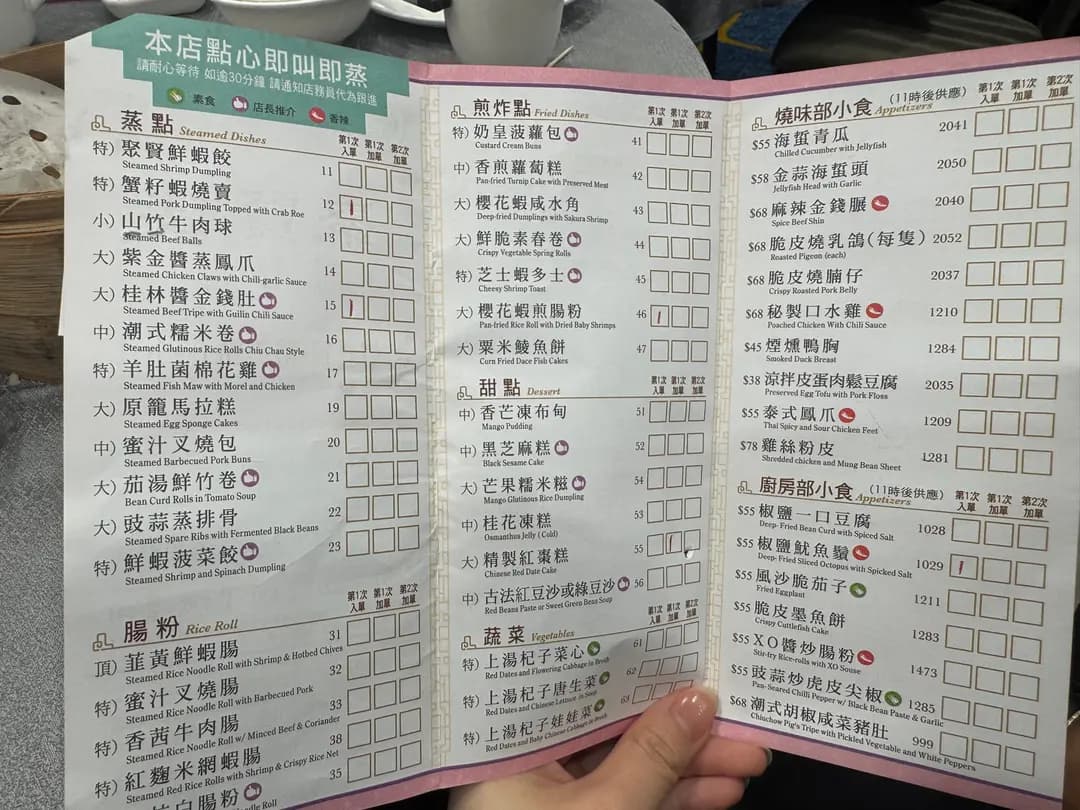 本店點心即叫即蒸
請耐心等待 如逾30分鐘 請通知店務員代為跟進
素食 店長推介 香辣
蒸點 Steamed Dishes 第1次入單 第1次加單 第2次加單
特) 聚賢鮮蝦餃 11
Steamed Shrimp Dumpling
特) 蟹籽蝦燒賣 12
Steamed Pork Dumpling Topped with Crab Roe
小) 山竹牛肉球 13
Steamed Beef Balls
大) 紫金醬蒸鳳爪 14
Steamed Chicken Claws with Chili-garlic Sauce
大) 桂林醬金錢肚 15
Steamed Beef Tripe with Guilin Chili Sauce
中) 潮式糯米卷 16
Steamed Glutinous Rice Rolls Chiu Chau Style
特) 羊肚菌棉花雞 17
Steamed Fish Maw with Morel and Chicken
大) 原籠馬拉糕 19
Steamed Egg Sponge Cakes
中) 蜜汁叉燒包 20
Steamed Barbecued Pork Buns
大) 茄湯鮮竹卷 21
Bean Curd Rolls in Tomato Soup
大) 豉蒜蒸排骨 22
Steamed Spare Ribs with Fermented Black Beans
特) 鮮蝦菠菜餃 23
Steamed Shrimp and Spinach Dumpling
腸粉 Rice Roll 第1次入單 第1次加單 第2次加單
頂) 韮黃鮮蝦腸 31
Steamed Rice Noodle Roll with Shrimp & Hotbed Chives
特) 蜜汁叉燒腸 32
Steamed Rice Noodle Roll with Barbecued Pork
特) 香茜牛肉腸 33
Steamed Rice Noodle Roll w/ Minced Beef & Coriander
特) 紅麴米網蝦腸 38
Steamed Red Rice Rolls with Shrimp & Crispy Rice Net
白腸粉 35
Noodle Roll
煎炸點 Fried Dishes 第1次入單 第1次加單 第2次加單
特) 奶皇菠蘿包 41
Custard Cream Buns
中) 香煎蘿蔔糕 42
Pan-fried Turnip Cake with Preserved Meat
大) 櫻花蝦咸水角 43
Deep-fried Dumplings with Sakura Shrimp
大) 鮮脆素春卷 44
Crispy Vegetable Spring Rolls
特) 芝士蝦多士 45
Cheesy Shrimp Toast
大) 櫻花蝦煎腸粉 46
Pan-fried Rice Roll with Dried Baby Shrimps
大) 粟米鯪魚餅 47
Corn Fried Dace Fish Cakes
甜點 Dessert 第1次入單 第1次加單 第2次加單
中) 香芒凍布甸 51
Mango Pudding
中) 黑芝麻糕 52
Black Sesame Cake
大) 芒果糯米糍 54
Mango Glutinous Rice Dumpling
中) 桂花凍糕 53
Osmanthus Jelly (Cold)
大) 精製紅棗糕 55
Chinese Red Date Cake
中) 古法紅豆沙或綠豆沙 56
Red Beans Paste or Sweet Green Bean Soup
蔬菜 Vegetables 第1次入單 第1次加單 第2次加單
特) 上湯杞子菜心 61
Red Dates and Flowering Cabbage in Broth
特) 上湯杞子唐生菜 62
Red Dates and Chinese Lettuce in Soup
特) 上湯杞子娃娃菜 63
Red Dates and Baby Chinese Cabbage in Broth
燒味部小食 (11時後供應) Appetizers 第1次入單 第1次加單 第2次加單
$55 海蜇青瓜 2041
Chilled Cucumber with Jellyfish
$58 金蒜海蜇頭 2050
Jellyfish Head with Garlic
$68 麻辣金錢𦟌 2040
Spice Beef Shin
$68 脆皮燒乳鴿(每隻) 2052
Roasted Pigeon (each)
$68 脆皮燒腩仔 2037
Crispy Roasted Pork Belly
$68 秘製口水雞 1210
Poached Chicken With Chili Sauce
$45 煙燻鴨胸 1284
Smoked Duck Breast
$38 涼拌皮蛋肉鬆豆腐 2035
Preserved Egg Tofu with Pork Floss
$55 泰式鳳爪 1209
Thai Spicy and Sour Chicken Feet
$78 雞絲粉皮 1281
Shredded chicken and Mung Bean Sheet
廚房部小食 (11時後供應) Appetizers 第1次入單 第1次加單 第2次加單
$55 椒鹽一口豆腐 1028
Deep- Fried Bean Curd with Spiced Salt
$55 椒鹽魷魚鬚 1029
Deep- Fried Sliced Octopus with Spicked Salt
$55 風沙脆茄子 1211
Fried Eggplant
$55 脆皮墨魚餅 1283
Crispy Cuttlefish Cake
$55 XO醬炒腸粉 1473
Stir-fry Rice-rolls with XO Souse
$55 豉蒜炒虎皮尖椒 1285
Pan-Seared Chilli Pepper w/ Black Bean Paste & Garlic
$68 潮式胡椒咸菜豬肚 999
Chiuchow Pig's Tripe with Pickled Vegetable and White Peppers